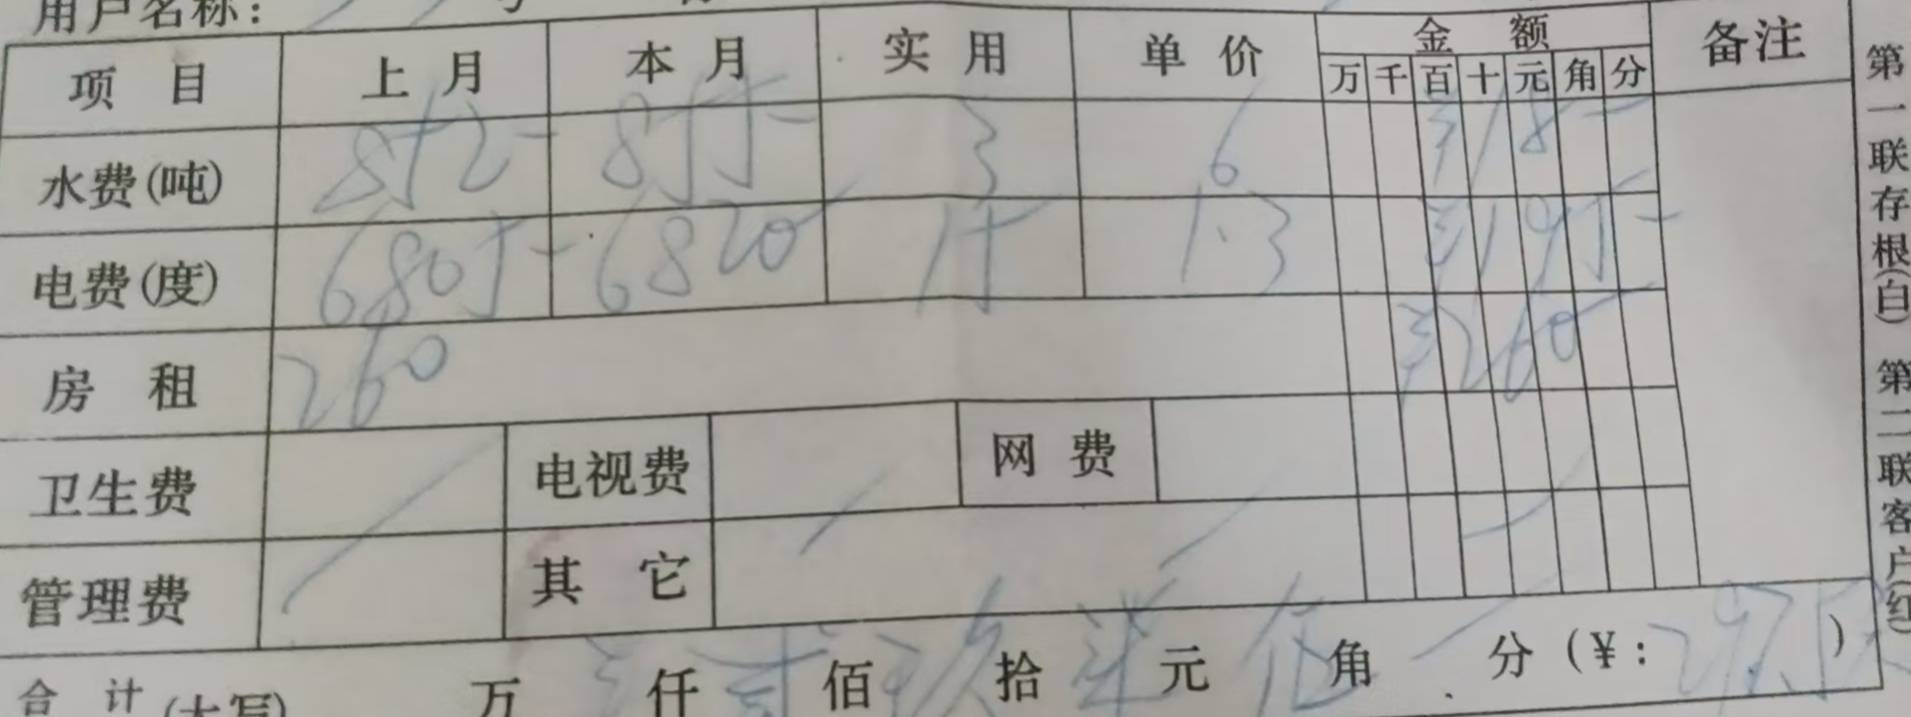 用户名称：
项 目 上 月 本 月 实 用 单 价 金 额 备注
万 千 百 十 元 角 分
水费(吨) 852 855 3 6 18
电费(度) 6805 6820 15 1.3 195
房 租 260 260
卫生费 电视费 网 费
管理费 其 它
合 计 (大写) 万 仟 贰 佰 玖 拾 柒 元 伍 角 分 (¥: 297.5)
第一联存根(白) 第二联客户(红)